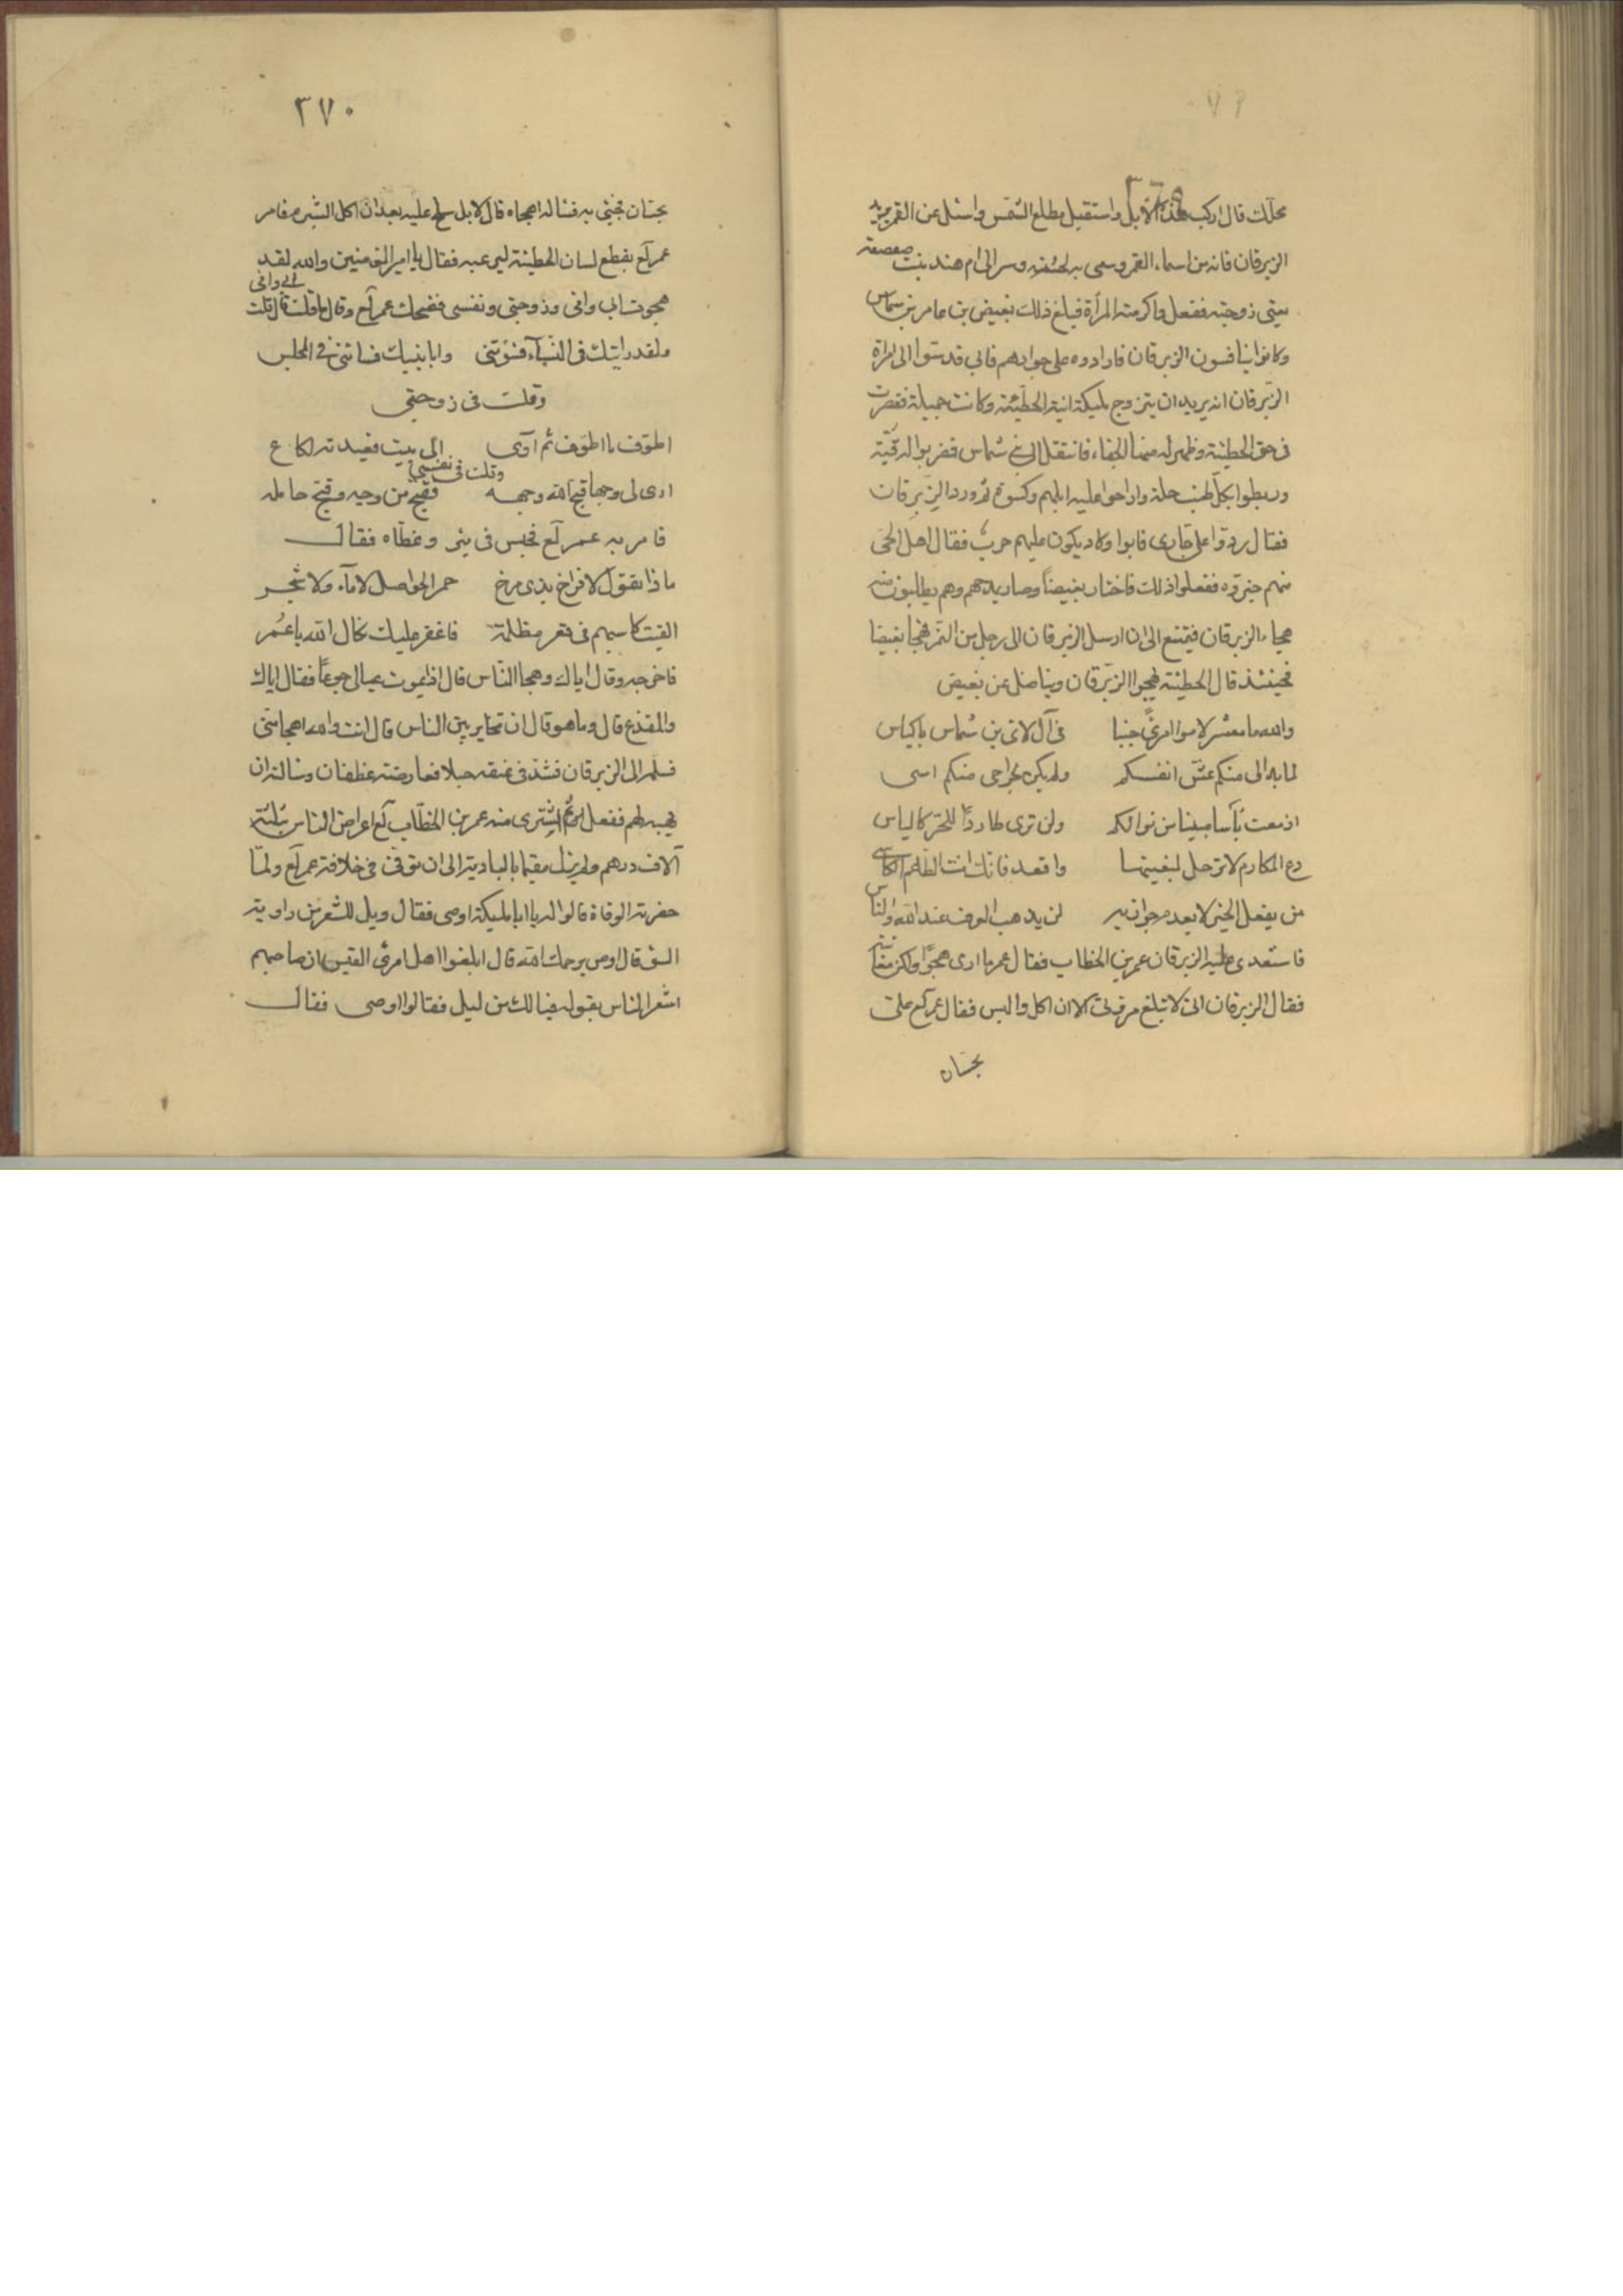 محلك قال اركب هذه الابل واستقبل مطلع الشمس واسئل عن القمر يريد
الزبرقان فانه من اسماء القمر وسمى به لحسنه وسر الى ام هند بنت صعصعة
يعني زوجته ففعل فاكرمته المرأة فبلغ ذلك بغيض بن عامر بن شماس
وكانوا ينافسون الزبرقان فارادوه على جوارهم فابى فدسّوا الى امراة
الزبرقان انه يريد ان يتزوج مليكة ابنة الحطيئة وكانت جميلة فقصرت
فى حق الحطيئة وظهر له منها الجفاء فانتقل الى بنى شماس فضربوا له قبّة
وربطوا بكل طنب حلة واراحوا عليه ابلهم وكسوة ثم ورد الزبرقان
فقال ردّوا على جارى فابوا وكاد يكون عليهم حرب فقال اهل الحى
منهم خيّروه ففعلوا ذلك فاختار بغيضاً وصار يمدحهم وهم يطالبون منه
هجاء الزبرقان فيمتنع الى ان ارسل الزبرقان الى رجل من النمر فهجا بغيضا
فحينئذ قال الحطيئة يهجوا الزبرقان ويناضل عن بغيض
والله ما معشر لاموا امرءً جنبا فى آل لاى بن شماس باكياس
لما بدا لى منكم عش انفسكم ولم يكن لجراحى منكم اسى
ازمعت يأسا مبينا من نوالكم ولن ترى طارداً للحرّ كالياس
دع المكارم لا ترحل لبغيتها واقعد فانك انت الطاعم الكاسى
من يفعل الخير لا يعدم جوازيه لن يذهب العرف عند الله والناس
فاستعدى عليه الزبرقان عمر بن الخطاب فقال عمر ما ارى هجوًا ولكن معاتبة
فقال الزبرقان انى لا تبلغ مروتى الا ان اكل والبس فقال عمر لع على
بحسّان
٣٧٠
بحسّان فجئ به فسئاله اهجاه قال لا بل سلح عليه بعد ان اكل الشبرم فامر
عمر لع بقطع لسان الحطيئة ليرعبه فقال يا امير المؤمنين والله لقد
هجوت ابى وامى وزوجتى ونفسى فضحك عمر لع وقال ما قلت قال قلت
لابى وامى
ولقد رايتك فى النساء فسؤتنى وابا بنيك فسائنى فى المجلس
وقلت فى زوجتى
اطوّف ما اطوّف ثم آوى الى بيت قعيدته لكاع
وقلت فى نفسى
ارى لى وجها قبح الله وجهه فقبح من وجه وقبح حامله
فامر به عمر لع فحبس فى بئر وغطّاه فقال
ماذا تقول لافراخ بذى مرخ حمر الحواصل لا مآء ولا شجر
القيت كاسبهم فى قعر مظلمة فاغفر عليك سلام الله يا عمر
فاخرجه وقال اياك وهجا النّاس قال اذا يموت عيالى جوعاً فقال اياك
والمقذع قال وما هو قال ان تخاير بين الناس قال انت والله اهجا منّى
فسلمه الى الزبرقان فشدّ فى عنقه حبلا فعارضته غطفان وسالته ان
يهبه لهم ففعل ثم اشترى منه عمر بن الخطّاب لع اعراض الناس بثلثة
آلاف درهم ولم يزل مقيما بالبادية الى ان توفى فى خلافة عمر لع ولمّا
حضرته الوفاة قالوا له يا ابا مليكة اوصى فقال ويل للشعر من راوية
السؤ قال اوص يرحمك الله قال ابلغوا اهل امرئ القيس ان صاحبهم
اشعر الناس بقوله فيا لك من ليل فقالوا اوصى فقال